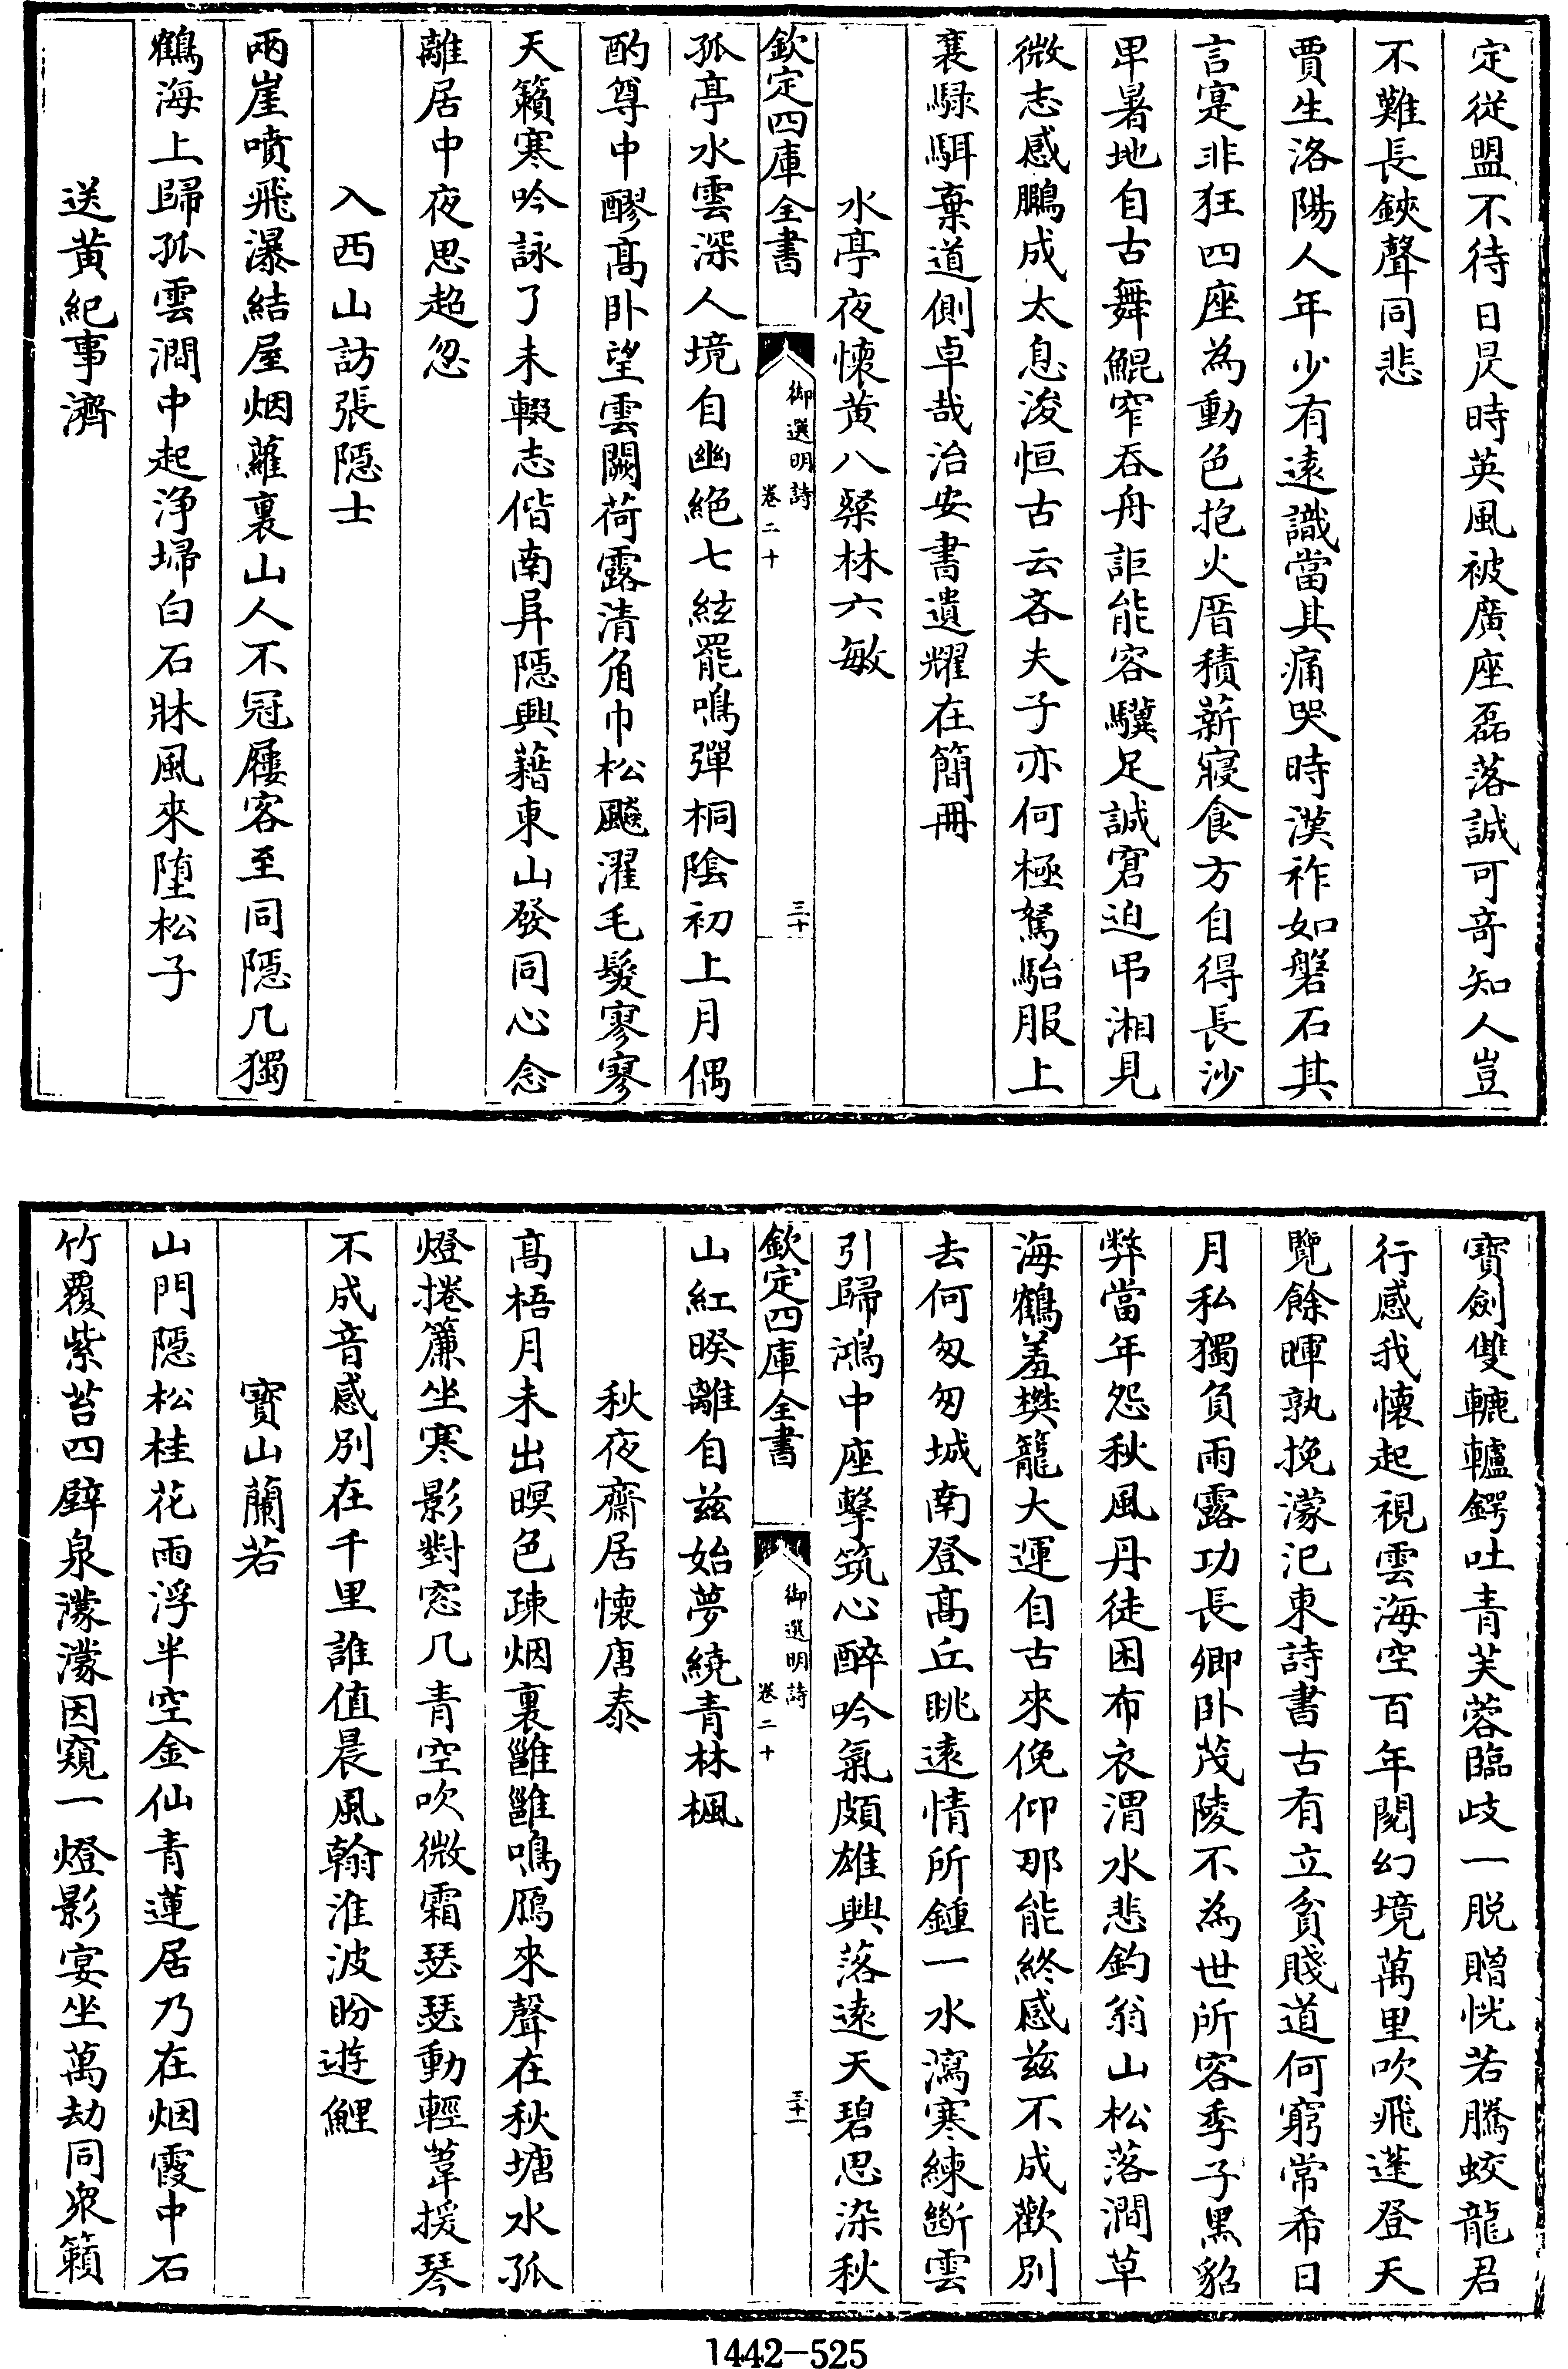 定從盟不待日昃時英風被廣座磊落誠可竒知人豈
不難長鋏聲同悲
賈生洛陽人年少有逺識當其痛哭時漢祚如磐石其
言寔非狂四座為動色抱火厝積薪寢食方自得長沙
卑暑地自古舞鯤窄吞舟詎能容驥足誠窘迫弔湘見
微志感鵩成太息浚恒古云吝夫子亦何極駑駘服上
襄騄駬棄道側卓哉治安書遺耀在簡冊
水亭夜懷黄八粲林六敏
欽定四庫全書
御選明詩
卷二十
三十
孤亭水雲深人境自幽絶七絃罷鳴彈桐隂初上月偶
酌尊中醪髙卧望雲闕荷露清角巾松飈濯毛髮寥寥
天籟寒吟詠了未輟志偕南𢌿隱興藉東山發同心念
離居中夜思超忽
入西山訪張隱士
兩崖噴飛瀑結屋烟蘿裏山人不冠屨客至同隱几獨
鶴海上歸孤雲澗中起浄埽白石牀風來堕松子
送黄紀事濟
寳劍雙轆轤鍔吐青芙蓉臨歧一脱贈恍若騰蛟龍君
行感我懷起視雲海空百年閱幻境萬里吹飛蓬登天
覽餘暉孰挽濛汜東詩書古有立貧賤道何窮常希日
月私獨負雨露功長卿卧茂陵不為世所容季子黒貂
弊當年怨秋風丹徒困布衣渭水悲釣翁山松落澗草
海鶴羞樊籠大運自古來俛仰那能終感兹不成歡别
去何匆匆城南登髙丘眺逺情所鍾一水瀉寒練斷雲
引歸鴻中座擊筑心醉吟氣頗雄興落逺天碧思染秋
欽定四庫全書
御選明詩
卷二十
三十一
山紅暌離自兹始夢繞青林楓
秋夜齋居懷唐泰
髙梧月未出暝色疎烟裏雝雝鳴鴈來聲在秋塘水孤
燈捲簾坐寒影對窓几青空吹微霜瑟瑟動輕葦援琴
不成音感别在千里誰值晨風翰淮波盼遊鯉
寳山蘭若
山門隱松桂花雨浮半空金仙青蓮居乃在烟霞中石
竹覆紫苔四壁泉濛濛因窺一燈影宴坐萬劫同衆籟
1442-525